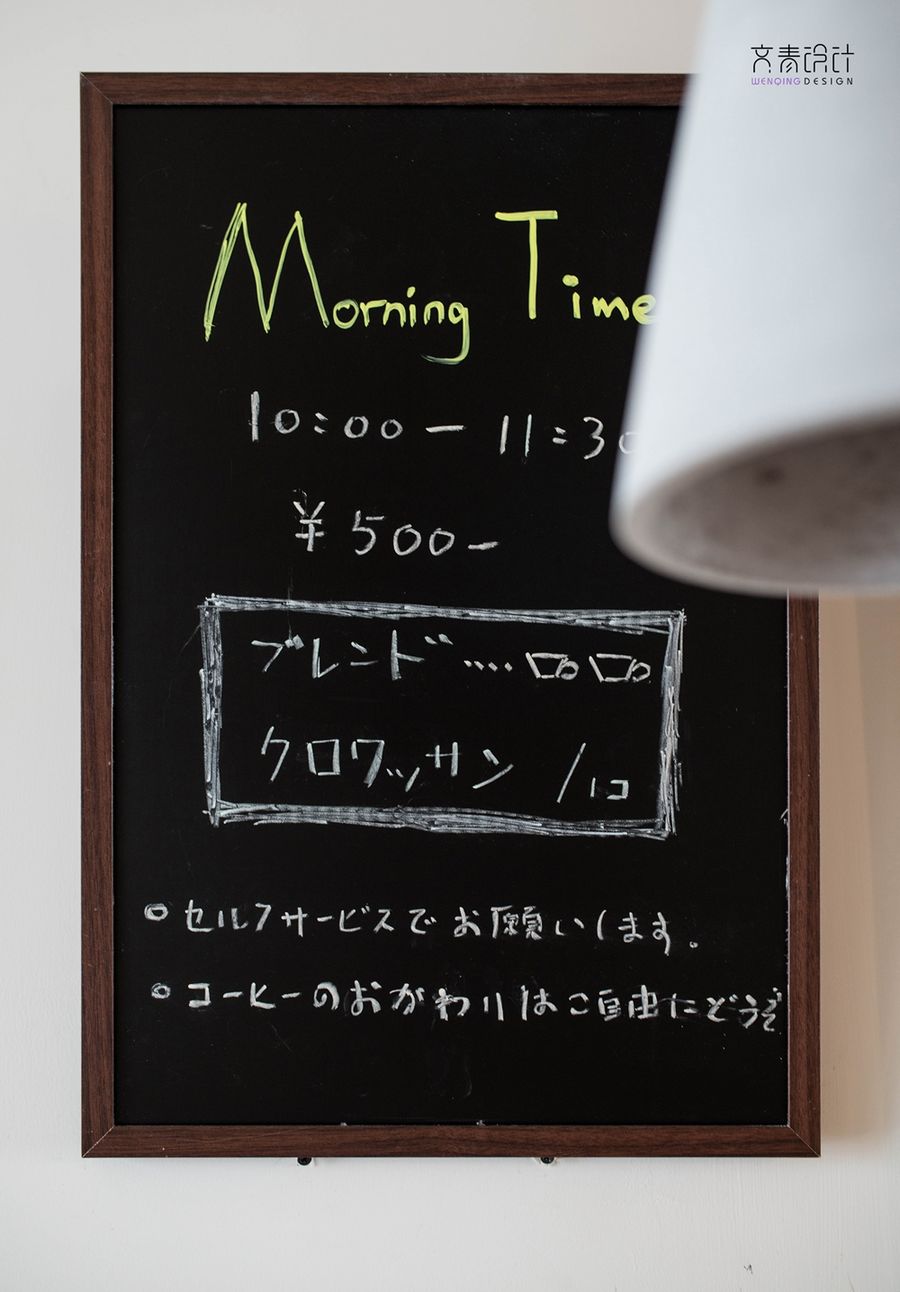 文青设计
WENQINGDESIGN
Morning Time
10:00 - 11:30
¥500-
ブレンド....
クロワッサン /1コ
セルフサービスでお願いします。
コーヒーのおかわりはご自由にどうぞ